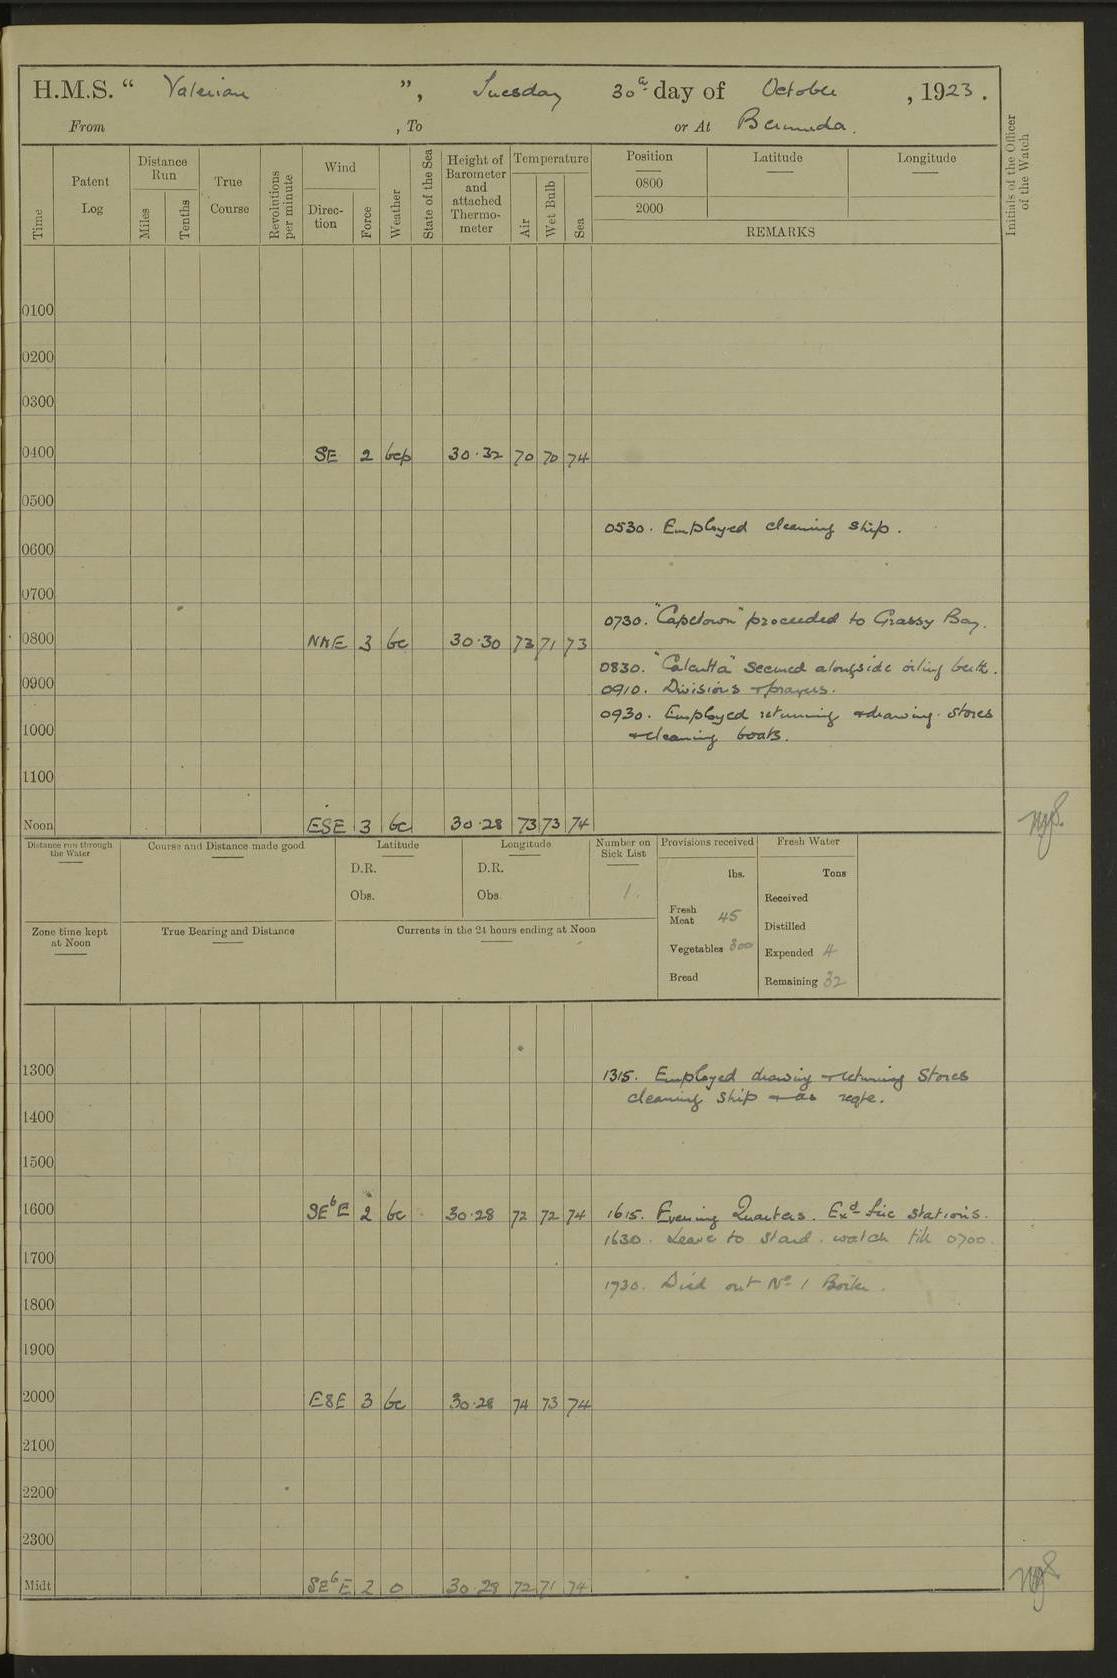 H.M.S. " Valerian ", Tuesday 30th day of October, 1923.
From , To or At Bermuda.
Time
Patent Log
Distance Run
Miles
Tenths
True Course
Revolutions per minute
Wind
Direction
Force
Weather
State of the Sea
Height of Barometer and attached Thermometer
Temperature
Air
Wet Bulb
Sea
Position
Latitude
Longitude
0800
2000
REMARKS
Initials of the Officer of the Watch
0100
0200
0300
0400 SE 2 bcp 30.32 70 70 74
0500
0530. Employed cleaning ship.
0600
0700
0730. "Capetown" proceeded to Grassy Bay.
0800 NNE 3 bc 30.30 73 71 73
0830. "Calcutta" secured alongside oiling berth.
0900
0910. Divisions + prayers.
0930. Employed returning + drawing stores
1000
+ cleaning boats.
1100
Noon ESE 3 bc 30.28 73 73 74
Distance run through the Water
Course and Distance made good
Latitude
D.R.
Obs.
Longitude
D.R.
Obs.
Number on Sick List
1.
Provisions received
lbs.
Fresh Meat 45
Vegetables 300
Bread
Fresh Water
Tons
Received
Distilled
Expended 4
Remaining 32
Zone time kept at Noon
True Bearing and Distance
Currents in the 24 hours ending at Noon
1300
1315. Employed drawing + returning Stores
cleaning ship + as reqte.
1400
1500
1600 SEbE 2 bc 30.28 72 72 74
1615. Evening Quarters. Exd fire stations.
1630. Leave to Stard. watch till 0700.
1700
1730. Died out No 1 Boiler.
1800
1900
2000 ESE 3 bc 30.28 74 73 74
2100
2200
2300
Midt SEbE 2 o 30.28 72 71 74